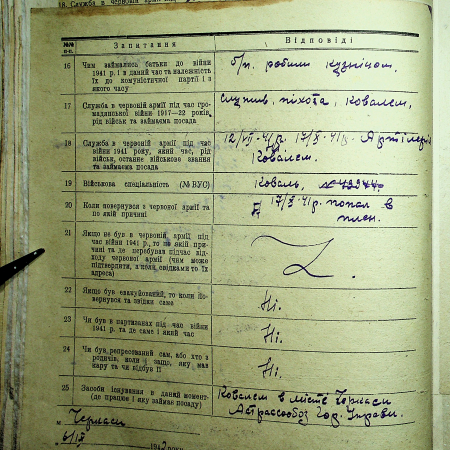 18. Служба в червоній армії під
№№ п-п. Запитання Відповіді
16 Чим займались батьки до війни б/п. робили кузнічом.
1941 р. і в даний час та належність
їх до комуністичної партії і з
якого часу
17 Служба в червоній армії під час гро- служив, піхота, Ковалем,
мадянської війни 1917—22 років,
рід військ та займаєма посада
18 Служба в червоній армії під час 12/VII-41р. 17/X-41р. Артілерія
війни 1941 року, який час, рід Ковалем.
військ, останнє військове звання
та займаєма посада
19 Військова спеціальність (№ ВУС) Коваль,
20 Коли повернувся з червоної армії та 17/X-41р. попал в
по якій причині плен.
21 Якщо не був в червоній армії під
час війни 1941 р., то по якій при-
чині та де перебував підчас від-
ходу червоної армії (чим може
підтвердити, а коли свідками то їх
адреса)
22 Якщо був евакуйований, то коли по- Ні.
вернувся та звідки саме
23 Чи був в партизанах під час війни Ні.
1941 р. та де саме і який час
24 Чи був репресований сам, або хто з Ні.
родичів, коли і защо, яку мав
кару та чи відбув її
25 Засоби існування в даний момент Ковалем в місті Черкаси
(де працює і яку займає посаду) Гор. Управи.
м. Черкаси
6/IX 1942 року